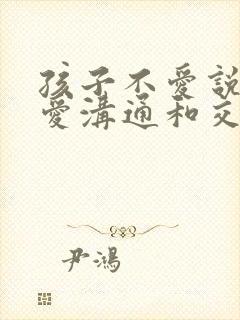 孩子不愛說
愛溝通和交
尹鴻